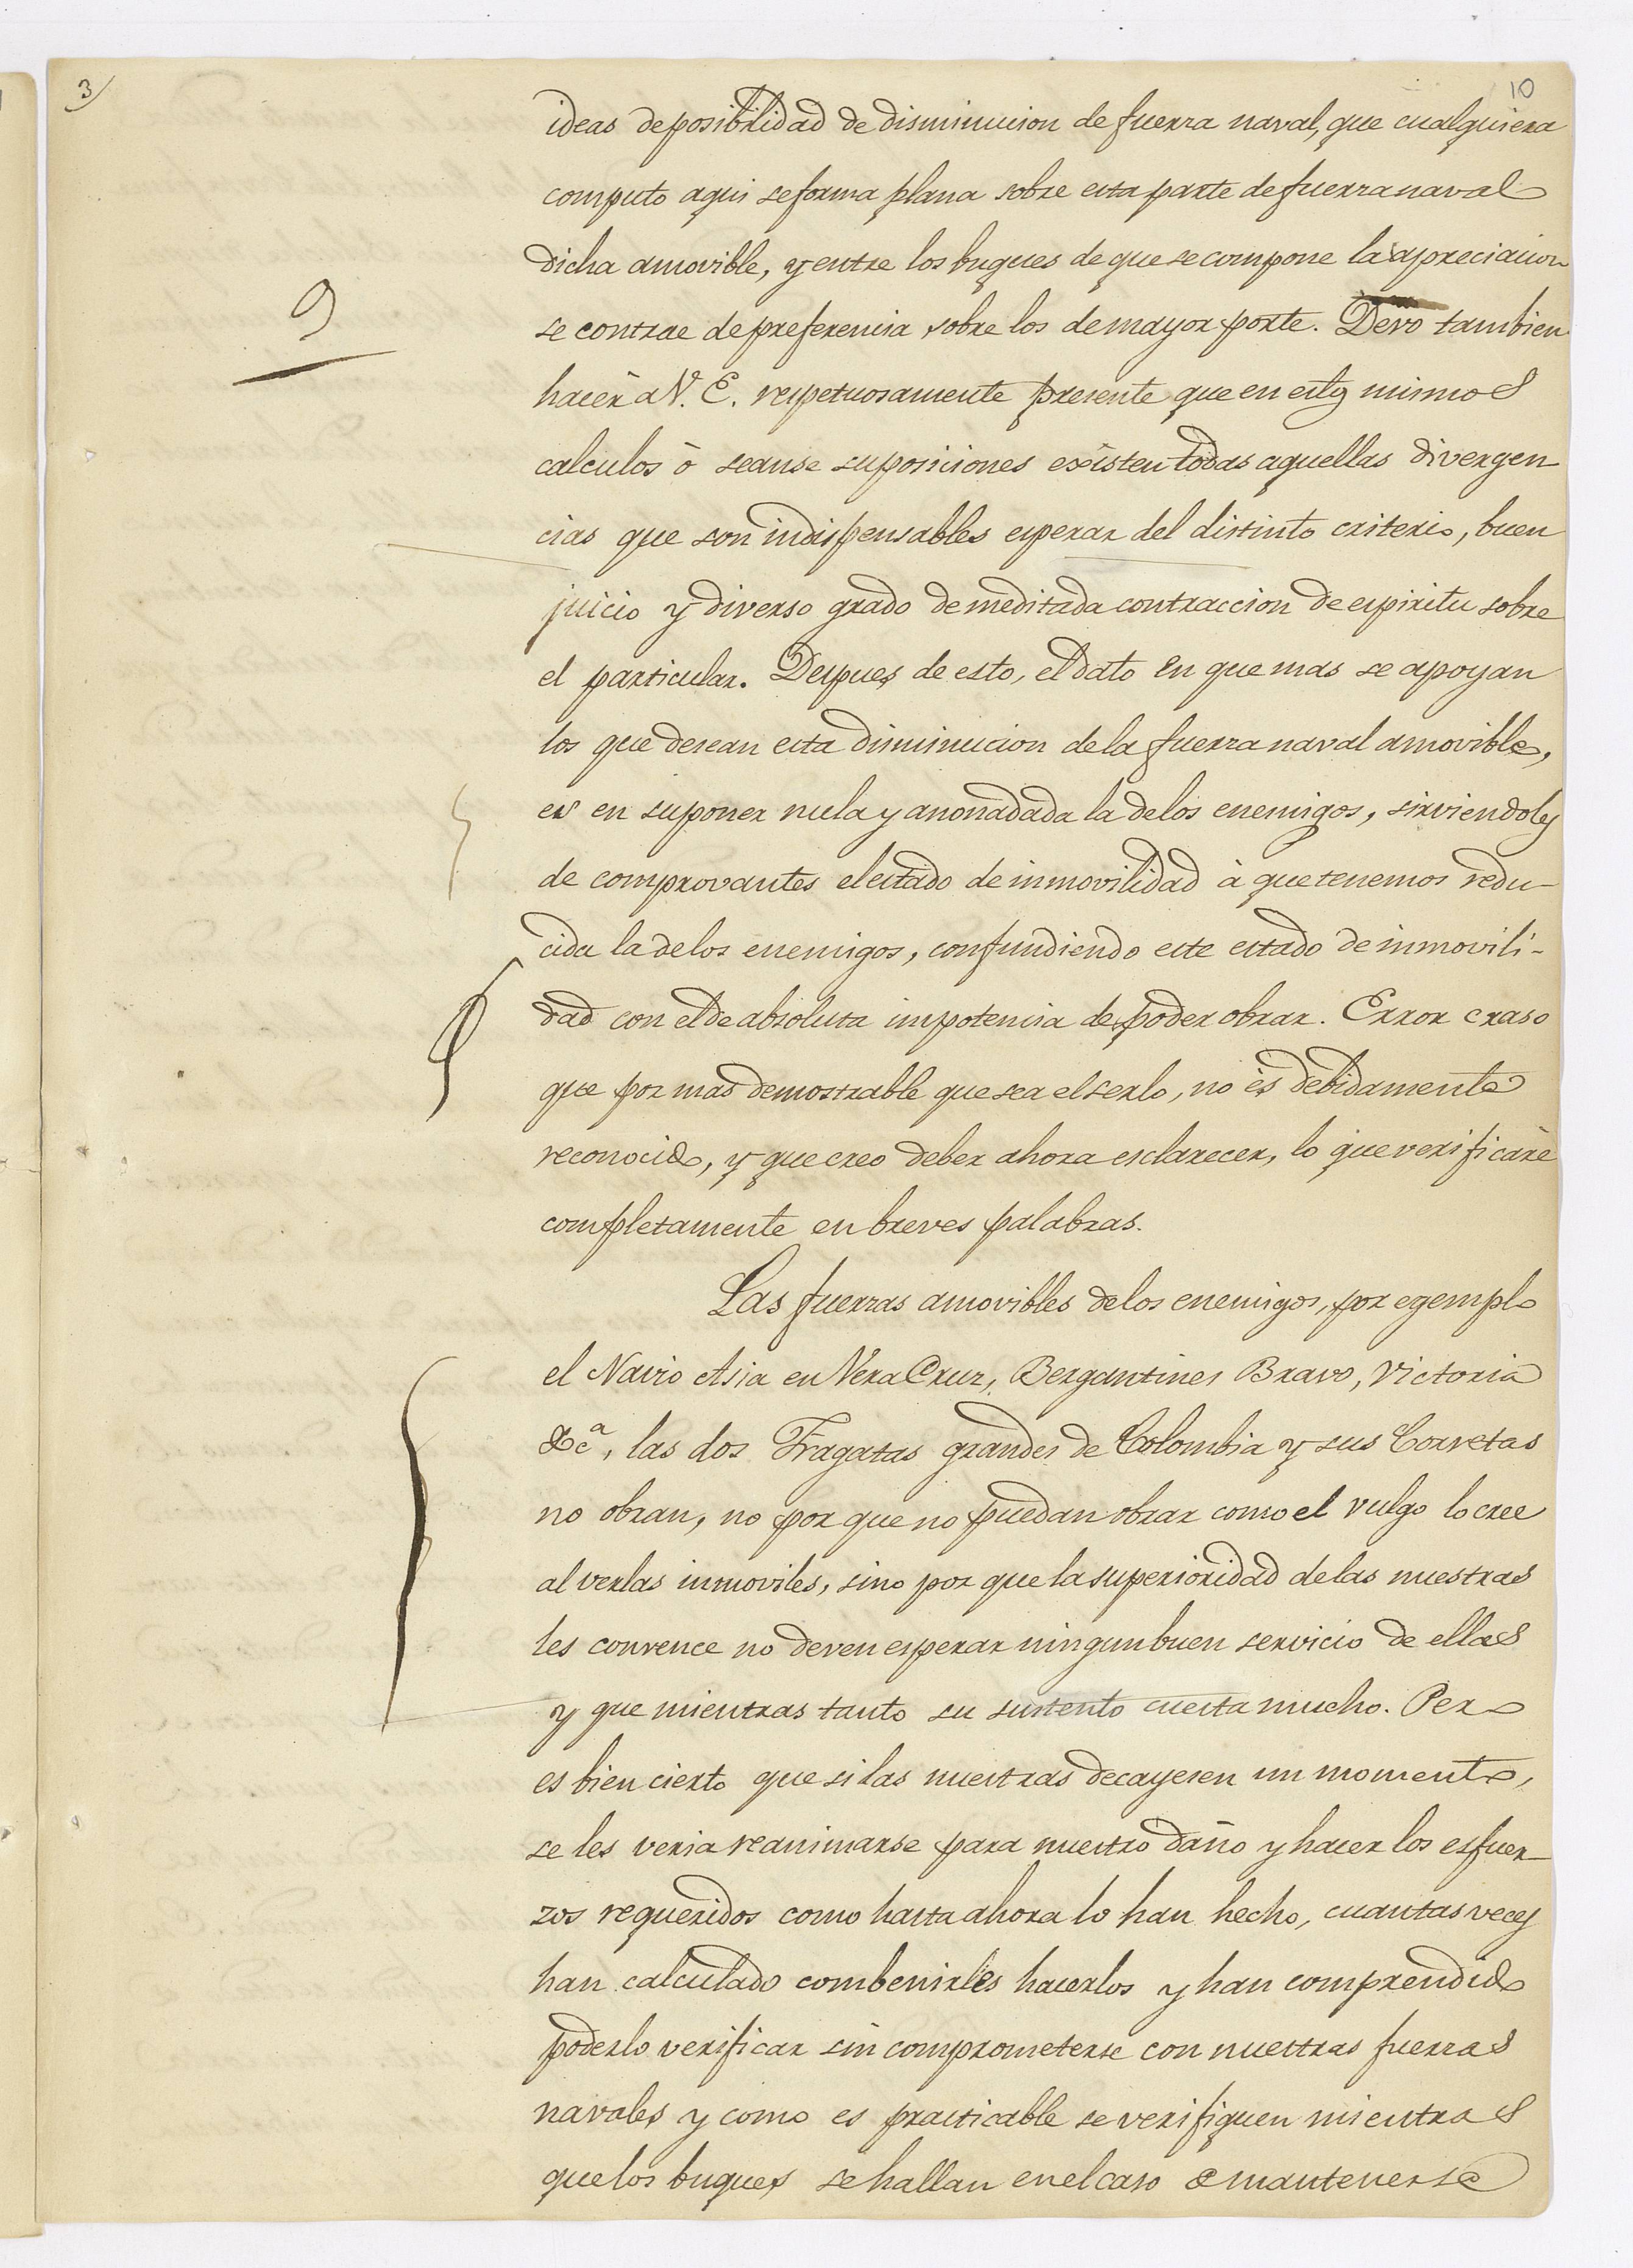 3/
10
ideas de posibilidad de disminucion de fuerza naval, que cualquiera
computo aqui se forma plana sobre esta parte de fuerza naval
dicha amovible, y entre los buques de que se compone la apreciacion
se contrae de preferencia sobre los de mayor porte. Devo tambien
9
hacer à V. E. respetuosamente presente que en estos mismos
calculos ò seanse suposiciones existen todas aquellas divergen
cias que son indispensables esperar del distinto criterio, buen
juicio y diverso grado de meditada contraccion de espiritu sobre
el particular. Despues de esto, el dato en que mas se apoyan
los que desean esta disminucion de la fuerza naval amovible,
es en suponer nula y anonadada la de los enemigos, sirviendoles
de comprovantes el estado de inmovilidad à que tenemos redu-
cida la de los enemigos, confundiendo este estado de inmovili-
dad con el de absoluta impotencia de poder obrar. Error craso
que por mas demostrable que sea el serlo, no és debidamente
reconocido, y que creo deber ahora esclarecer, lo que verificaré
completamente en breves palabras.
Las fuerzas amovibles de los enemigos, por egemplo
el Navio Asia en Vera Cruz, Bergantines Bravo, Victoria
&cª, las dos Fragatas grandes de Colombia y sus Corvetas
no obran, no por que no puedan obrar como el vulgo lo cree
al verlas inmoviles, sino por que la superioridad de las nuestras
les convence no deven esperar ningun buen servicio de ellas
y que mientras tanto su sustento cuesta mucho. Pero
es bien cierto que si las nuestras decayesen un momento,
se les veria reanimarse para nuestro daño y hacer los esfuer-
zos requeridos como hasta ahora lo han hecho, cuantas veces
han calculado combenirles hacerlos y han comprendido
poderlo verificar sin comprometerse con nuestras fuerzas
navales y como es practicable se verifiquen mientras
que los buques se hallan en el caso de mantenerse